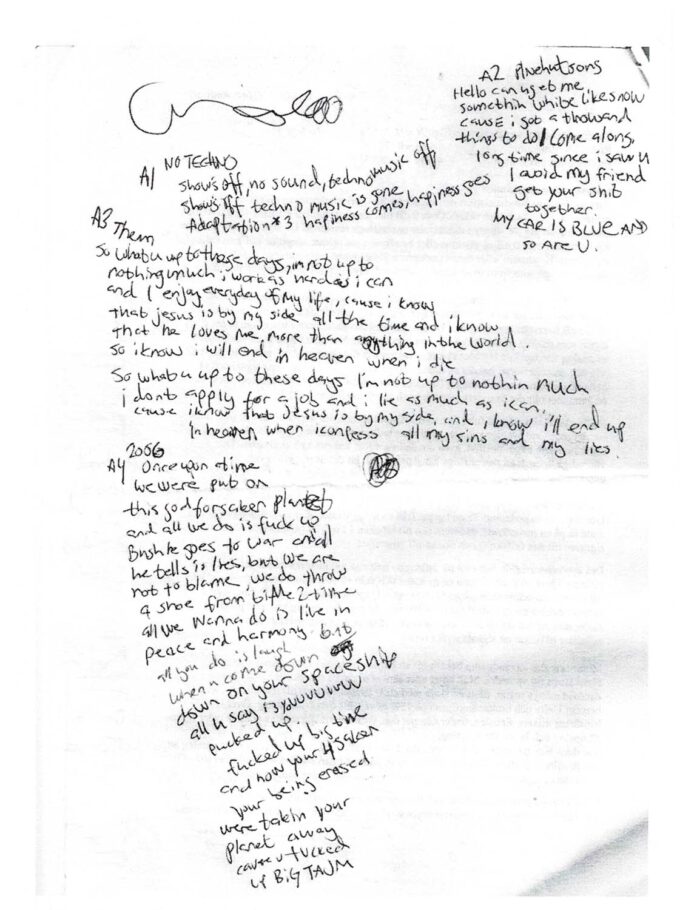 A1 NO TECHNO
shows off, no sound, techno music off
shows off techno music is gone
Adaptation *3 hapiness comes, hapiness goes
A2
Hello can u get me
somethin white like snow
cause i got a thousand
things to do / Come along,
long time since i saw u
I avoid my friend
get your shit
together.
My CAR IS BLUE AND
so ARE U.
A3 Them
So what u up to these days, im not up to
nothing much i work as hard as i can
and I enjoy everyday of my life, cause i know
that jesus is by my side all the time and i know
that he loves me more than anything in the world.
so i know i will end in heaven when i die
So what u up to these days I'm not up to nothin much
i dont apply for a job and i lie as much as i can,
cause i know that Jesus is by my side, and i know i'll end up
in heaven when i confess all my sins and my lies.
A4 2006
Once upon a time
we were put on
this godforsaken planet
and all we do is fuck up
Bush he goes to war and all
he tells is lies, but we are
not to blame, we do throw
a shoe from time 2 time
all we wanna do is live in
peace and harmony but
all you do is laugh
when u come down
down on your spaceship
all u say is youuuuuu
fucked up
fucked up big time
and now your
your being erased
were takin your
planet away
cause u fucked
up BiG TAJM